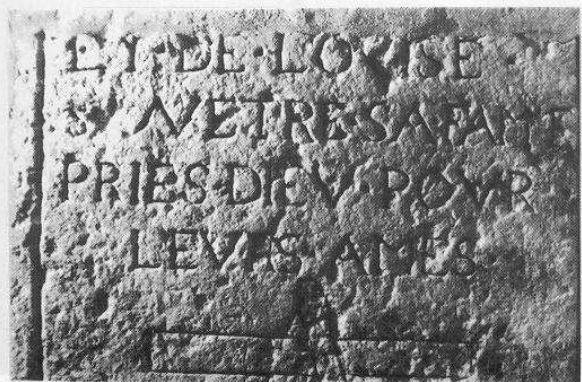 LY·DE·LOVISE·
SA·FAME
PRIES·DIEV·POVR
LEVRS AMES